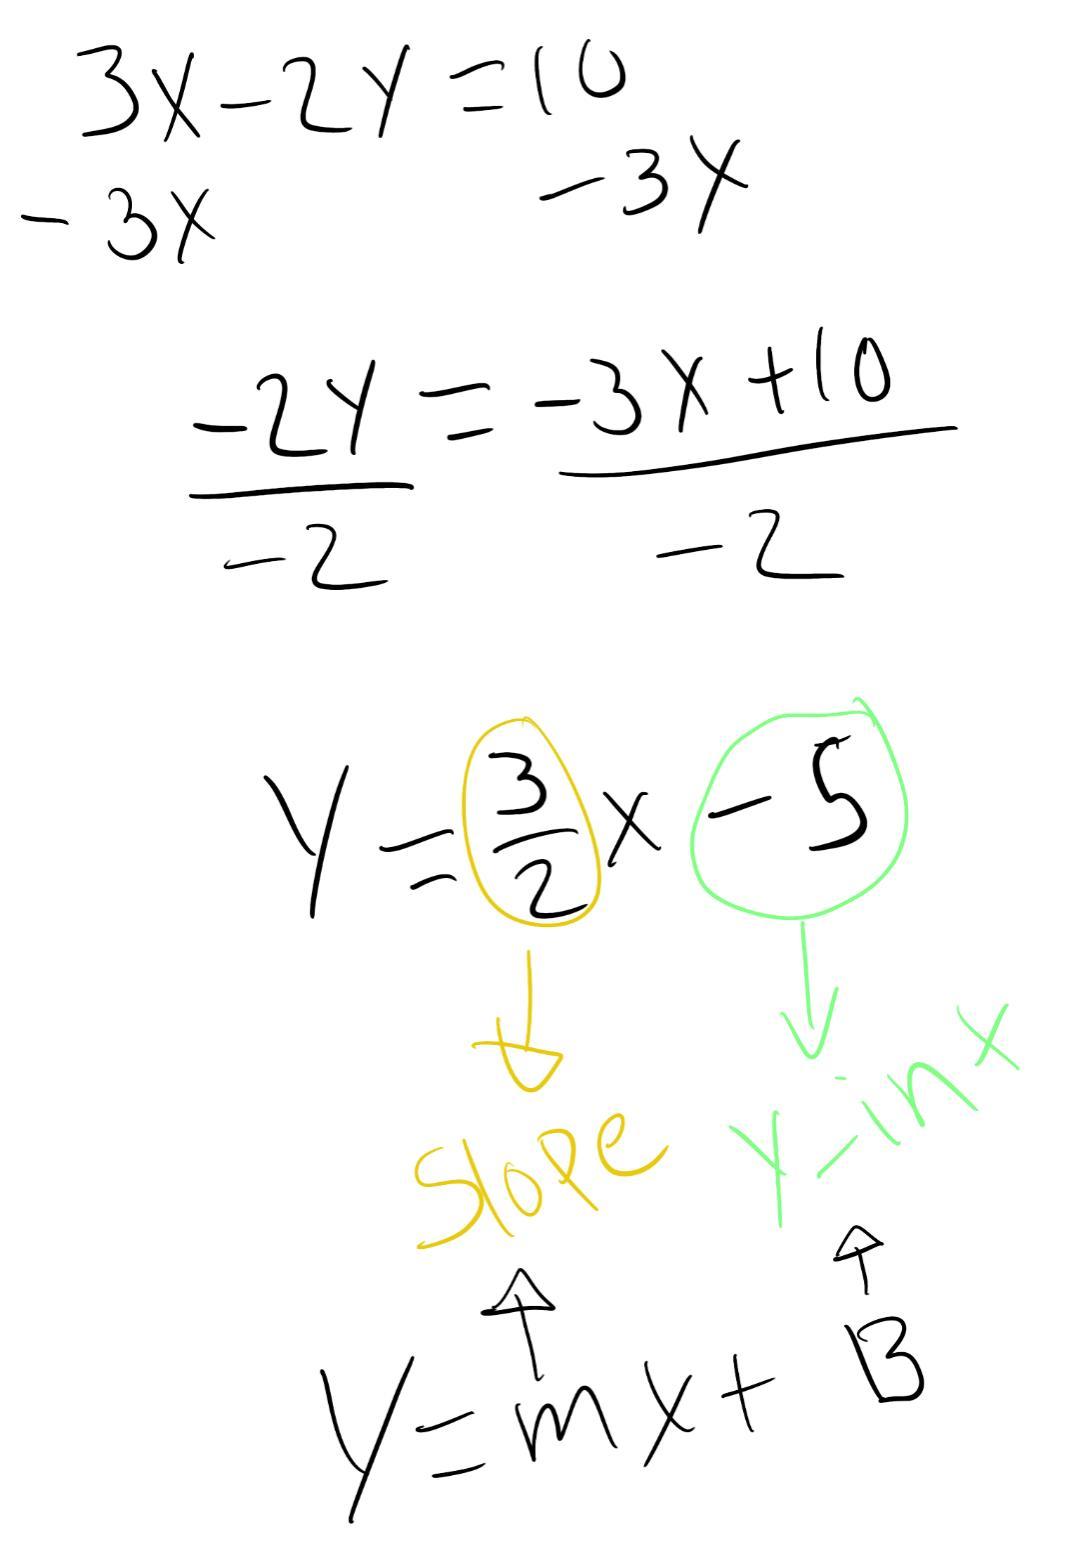 3x-2y=10
-3x -3x
-2y = -3x+10
-2 -2
y = 3/2 x -5
Slope y-inx
y=mx+B